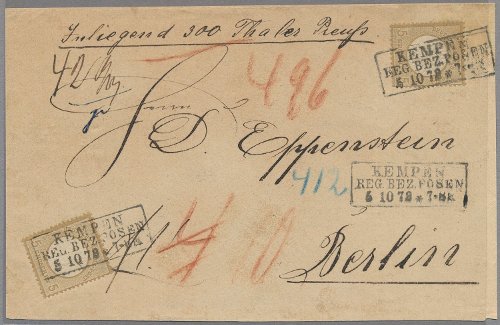 Inliegend 300 Thaler Preuß
KEMPEN
REG. BEZ. POSEN
5 10 72 * 7-8N.
42
496
Herrn
D. Eppenstein
412
KEMPEN
REG. BEZ. POSEN
5 10 72 * 7-8N.
KEMPEN
REG. BEZ. POSEN
5 10 72 * 7-8N.
5
5
Berlin